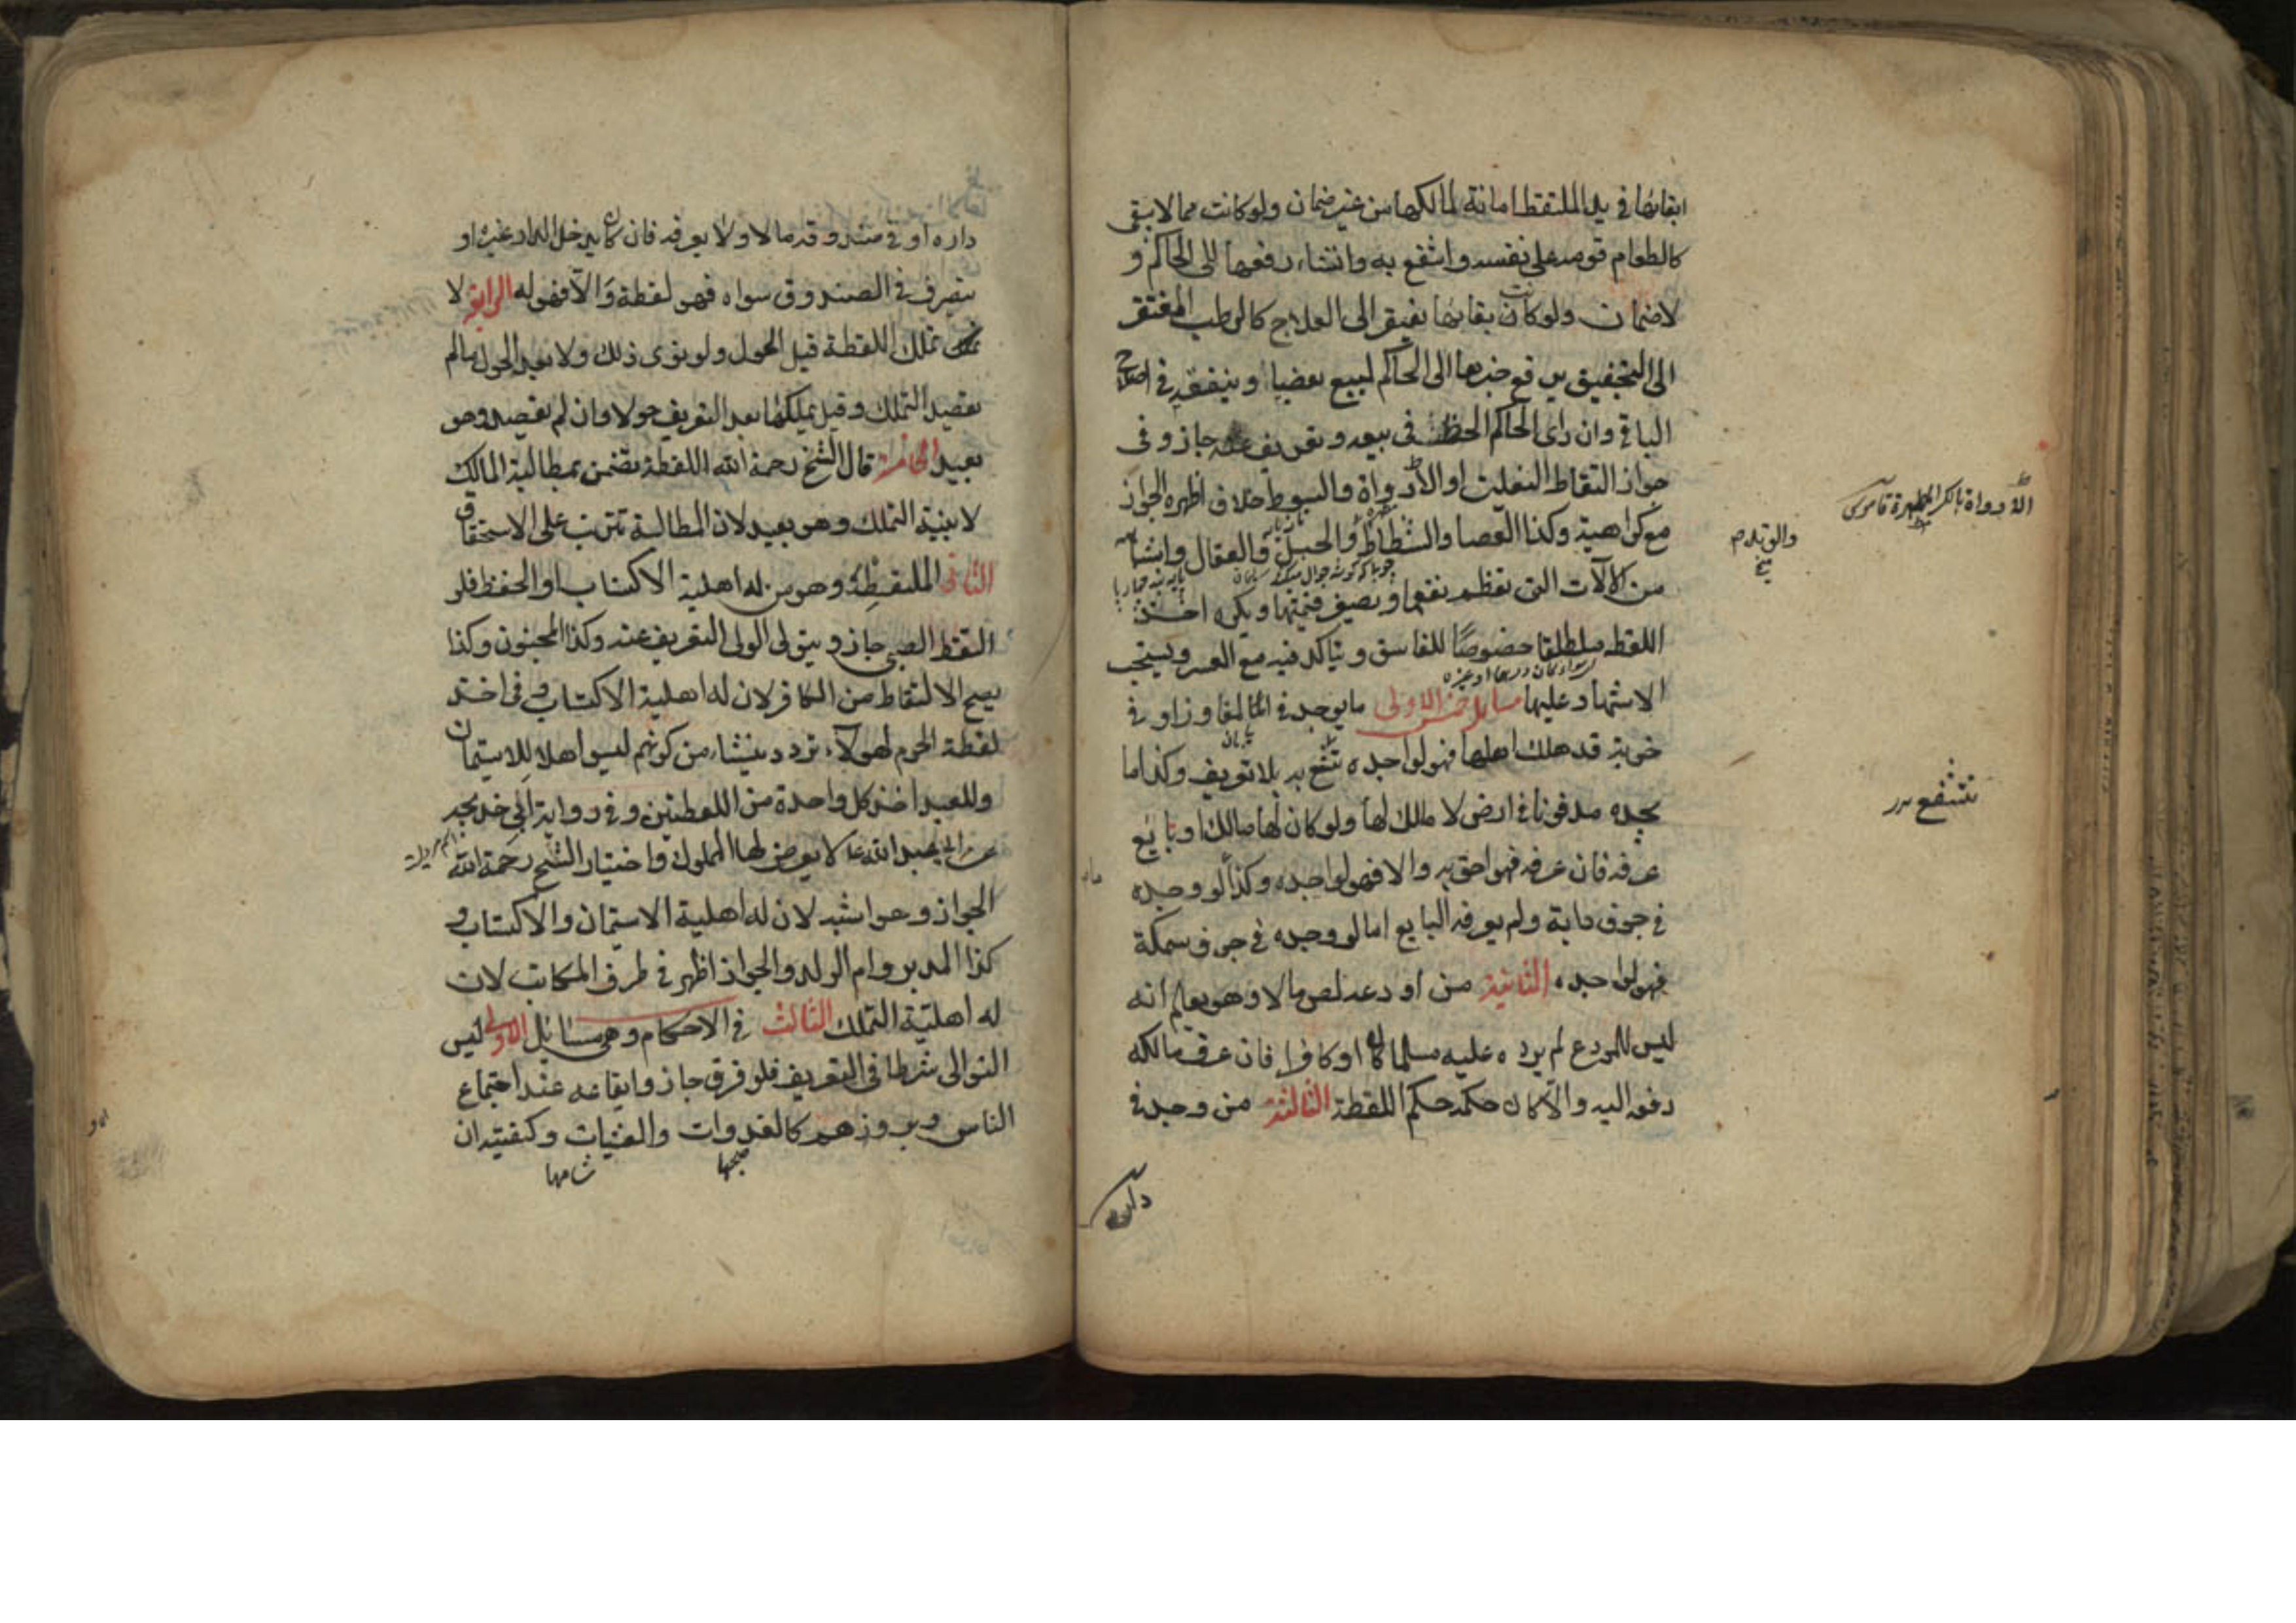 ابقائها في يد الملتقط امانة لمالكها من غير ضمان ولو كانت مما لا يبقى
كالطعام قومه على نفسه وانتفع به وان شاء دفعها الى الحاكم و
لا ضمان ولو كان بقائها يفتقر الى العلاج كالرطب المفتقر
الى التجفيف يرفع خبرها الى الحاكم ليبيع بعضها وينفقه في اصلاح
الباقي وان راى الحاكم الحظ في بيعه وتعريف جاز وفي
جواز التقاط النعلين او الادواة والسوط خلاف اظهره الجواز
مع كراهية وكذا العصا والشظاظ والحبل والعقال واشباهه
من الآلات التي تعظم نفعها وتصغر قيمتها ويكره اخذ
اللقطه مطلقا خصوصًا للفاسق ويتأكد فيه مع العسر ويستحب
الاشهاد عليها مسائل خمس الاولى ما يوجد في المفاوز او في
خربة قد هلك اهلها فهو لواجده ينتفع به بلا تعريف وكذا ما
يجده مدفونا في ارض لا مالك لها ولو كان لها مالك او بايع
عرفه فان عرفه فهو احق به والا فهو لواجده وكذا لو وجده
في جوف دابة ولم يعرفه البايع اما لو وجده في جوف سمكة
فهو لواجده الثانية من اودعه لص مالا وهو يعلم انه
ليس للمودع لم يرده عليه مسلما كان او كافرا فان عرف مالكه
دفعه اليه والا كان حكمه حكم اللقطة الثالثة من وجد في
الادواة بالكسر المطهرة قاموس
ينتفع به
داره
داره او في صندوقه مالا ولا يعرفه فان كان يدخل الدار غيره او
يتصرف في الصندوق سواه فهو لقطة والا فهو له الرابعة لا
تملك اللقطة قبل الحول ولو نوى ذلك ولا بعد الحول ما لم
يقصد التملك وقيل يملكها بعد التعريف حولا وان لم يقصد وهو
بعيد الخامسة قال الشيخ رحمة الله اللقطة تضمن بمطالبة المالك
لا بنية التملك وهو بعيد لان المطالبة تترتب على الاستحقاق
الثاني الملتقط وهو من له اهلية الاكتساب او الحفظ فلو
التقط الصبي جاز ويتولى الولي التعريف عنه وكذا المجنون وكذا
يصح الالتقاط من الكافر لان له اهلية الاكتساب وفي اخذ
لقطة الحرم لهولاء تردد ينشاء من كونهم ليسوا اهلا للاستيمان
وللعبد اخذ كل واحدة من اللقطتين وفي رواية ابي خديجه
عن ابي عبد الله ع لا يعرض لها المملوك واختيار الشيخ رحمة الله
الجواز وهو اشبه لان له اهلية الاستيمان والاكتساب و
كذا المدبر وام الولد والجواز اظهر في طرف المكاتب لان
له اهلية التملك الثالث في الاحكام وهي مسائل الاولى ليس
التوالي شرطا في التعريف فلو فرق جاز وايقاعه عند اجتماع
الناس وبروزهم كالغدوات والعشيات وكيفيته ان
صبحها
شامها